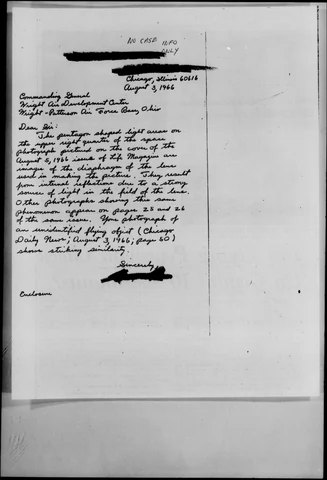 NO CASE INFO
ONLY
Chicago, Illinois 60616
August 3, 1966
Commanding General
Wright Air Development Center
Wright-Patterson Air Force Base, Ohio
Dear Sir:
The pentagon shaped light areas on
the upper right quarter of the space
photograph pictured on the cover of the
August 5, 1966 issue of Life Magazine are
images of the diaphragm of the lens
used in making the picture. They result
from internal reflections due to a strong
source of light in the field of the lens.
Other photographs showing this same
phenomenon appear on pages 25 and 26
of the same issue. Your photograph of
an unidentified flying object (Chicago
Daily News; August 3, 1966; page 50)
shows striking similarity.
Sincerely
Enclosure